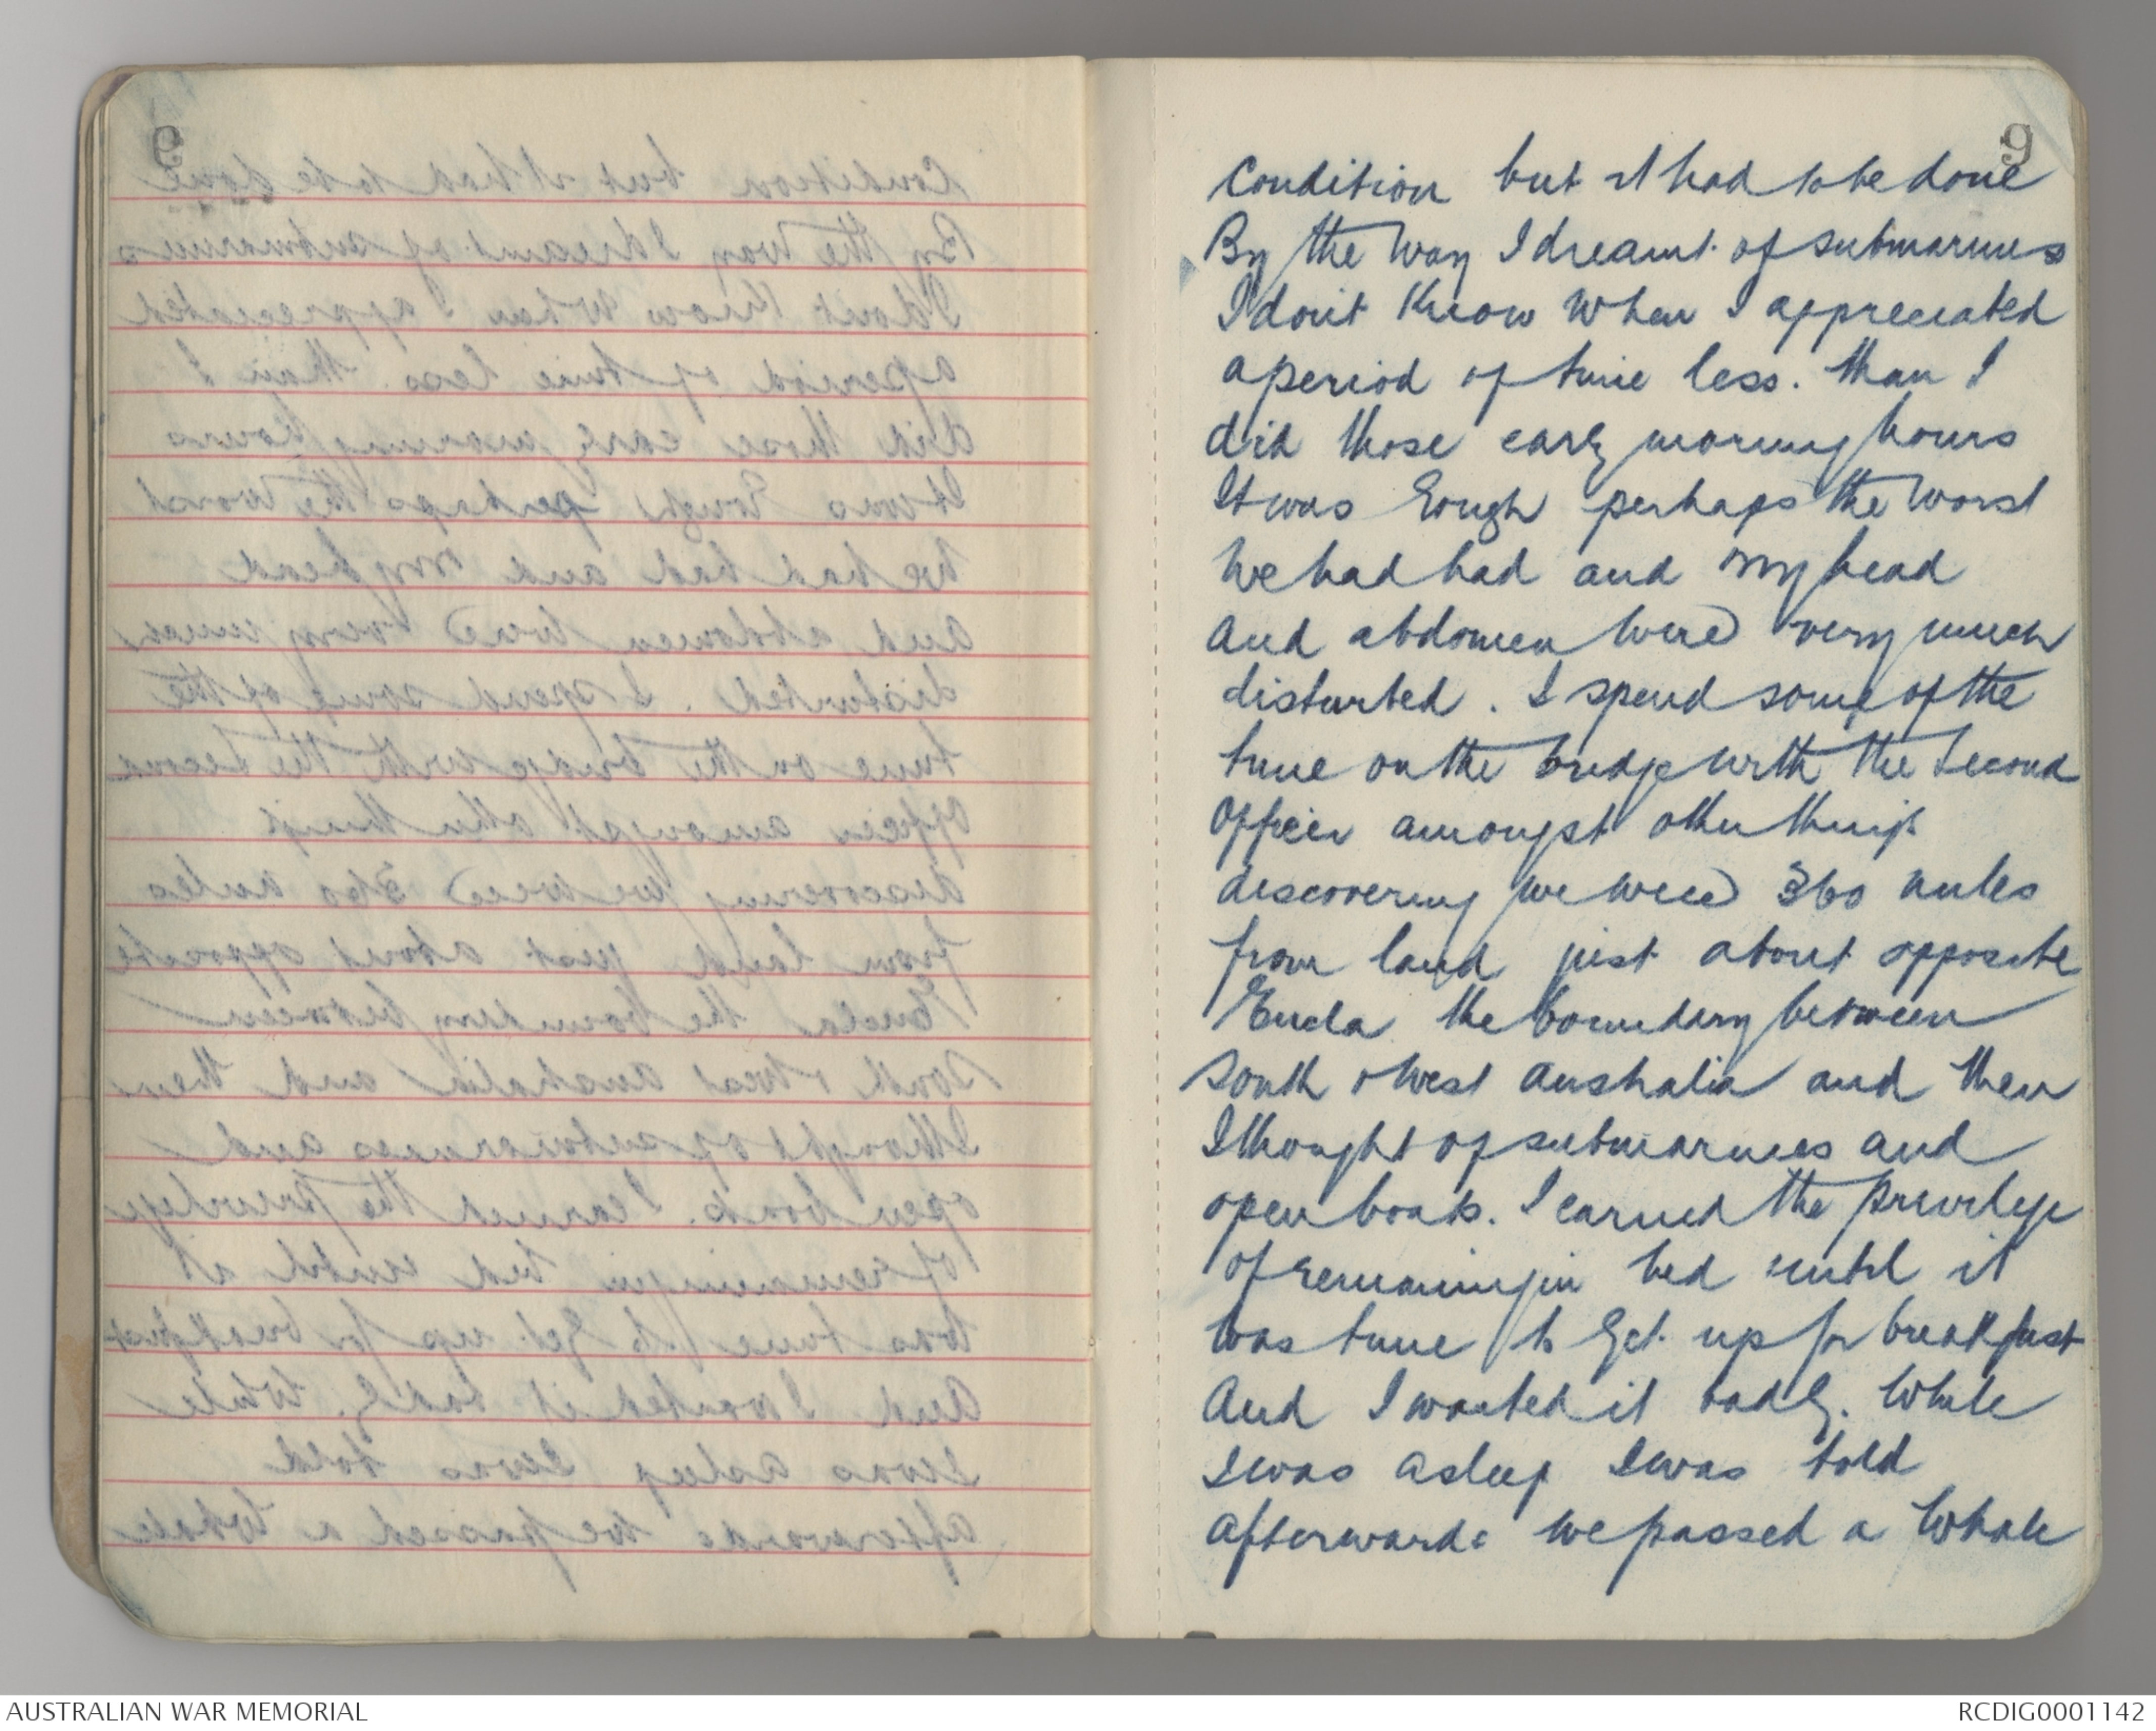 9
Condition but it had to be done
By the way I dreamt of submarines
I don't know when I appreciated
a period of time less. than I
did those early morning hours
It was rough perhaps the worst
we had had and my head
and abdomen were very much
disturbed. I spend some of the
time on the bridge with the second
officer amongst other things
discovering we were 360 miles
from land just about opposite
Eucla the boundary between
South & West Australia and then
I thought of submarines and
open boats. I earned the privilege
of remaining in bed until it
was time to get up for breakfast
and I wanted it badly. While
I was asleep I was told
afterwards we passed a whale
AUSTRALIAN WAR MEMORIAL
RCDIG0001142